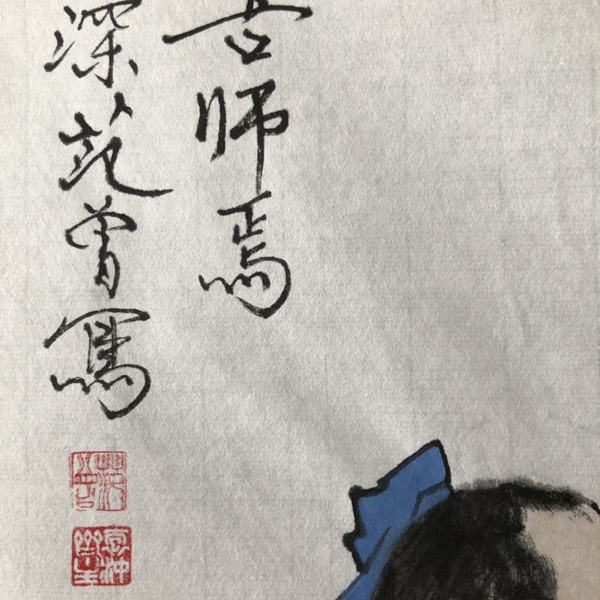 古師焉
深范曾寫